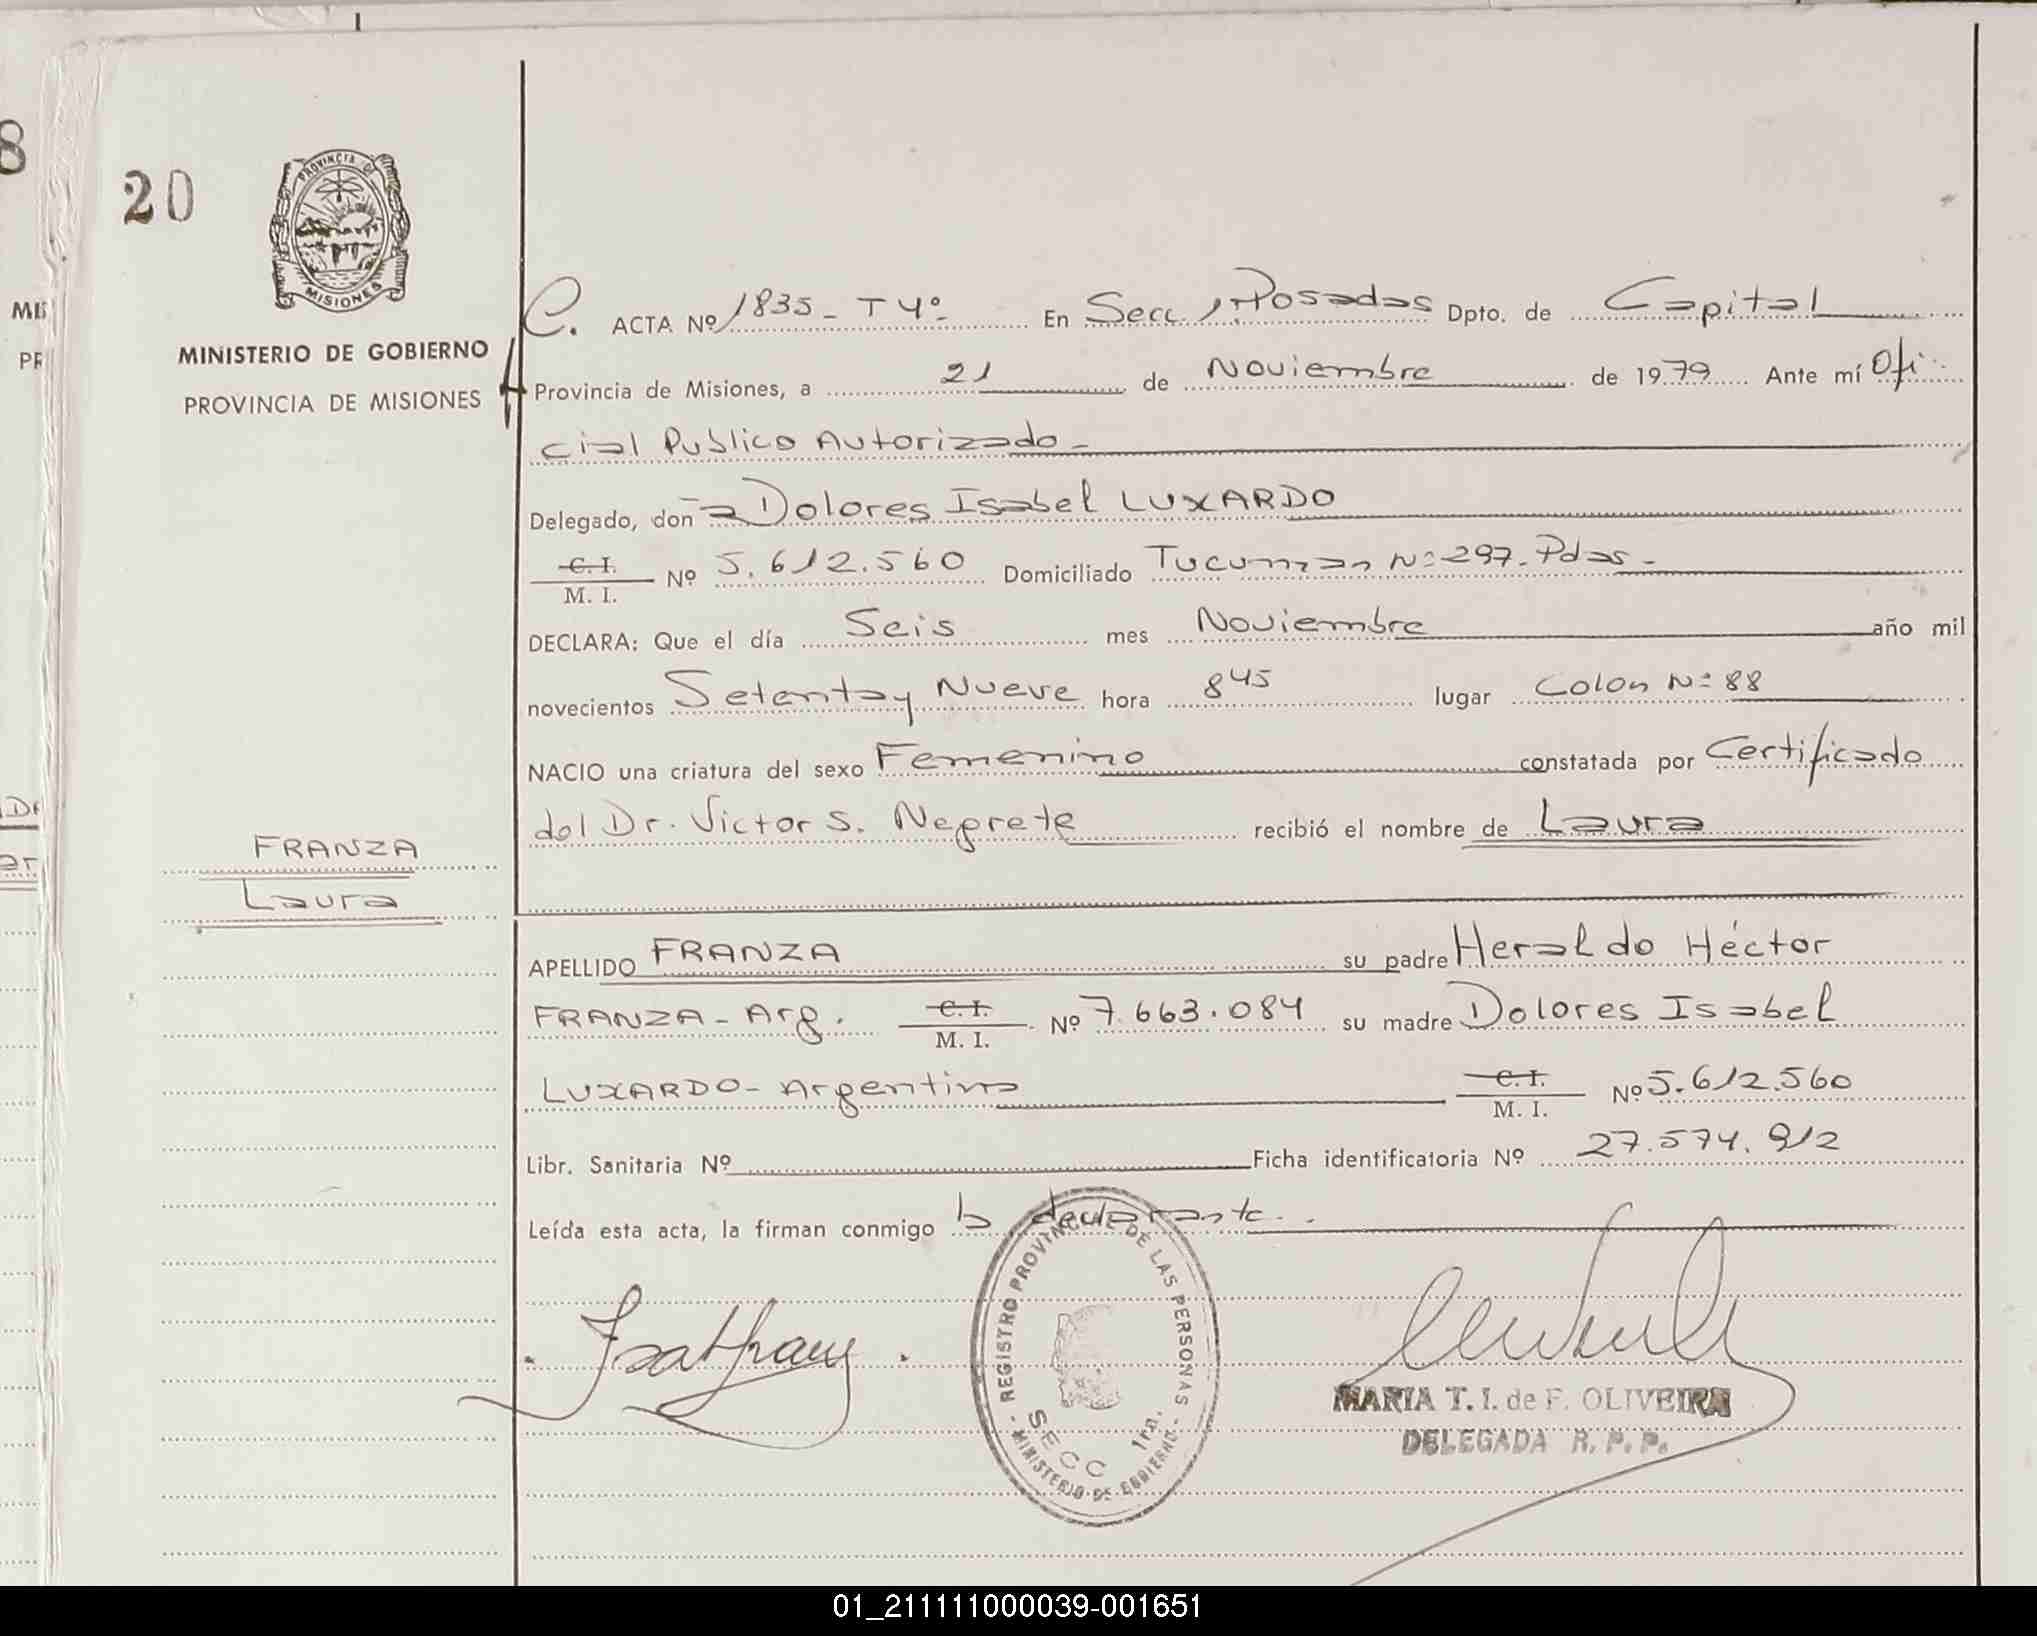 8
20
PROVINCIA DE
MISIONES
MINISTERIO DE GOBIERNO
PROVINCIA DE MISIONES
MIS
PR
C. ACTA Nº 1835 - T 4º En Secc. 1ª Posadas Dpto. de Capital
Provincia de Misiones, a 21 de Noviembre de 1979 Ante mí Ofi
cial Publico Autorizado -
Delegado, doña Dolores Isabel LUXARDO
C. I.
M. I. Nº 5.612.560 Domiciliado Tucuman Nº 297. Pdas -
DECLARA: Que el día Seis mes Noviembre año mil
novecientos Setenta y Nueve hora 8 45 lugar Colon Nº 88
NACIO una criatura del sexo Femenino constatada por Certificado
del Dr. Victor S. Negrete recibió el nombre de Laura
FRANZA
Laura
APELLIDO FRANZA su padre Heraldo Héctor
FRANZA - Arg. C. I.
M. I. Nº 7.663.084 su madre Dolores Isabel
LUXARDO - Argentina C. I.
M. I. Nº 5.612.560
Libr. Sanitaria Nº Ficha identificatoria Nº 27.574.912
Leída esta acta, la firman conmigo la declarante.
REGISTRO PROVINCIAL DE LAS PERSONAS
SECC 1ra.
MINISTERIO DE GOBIERNO
MARIA T. I. de F. OLIVEIRA
DELEGADA R. P. P.
01_211111000039-001651